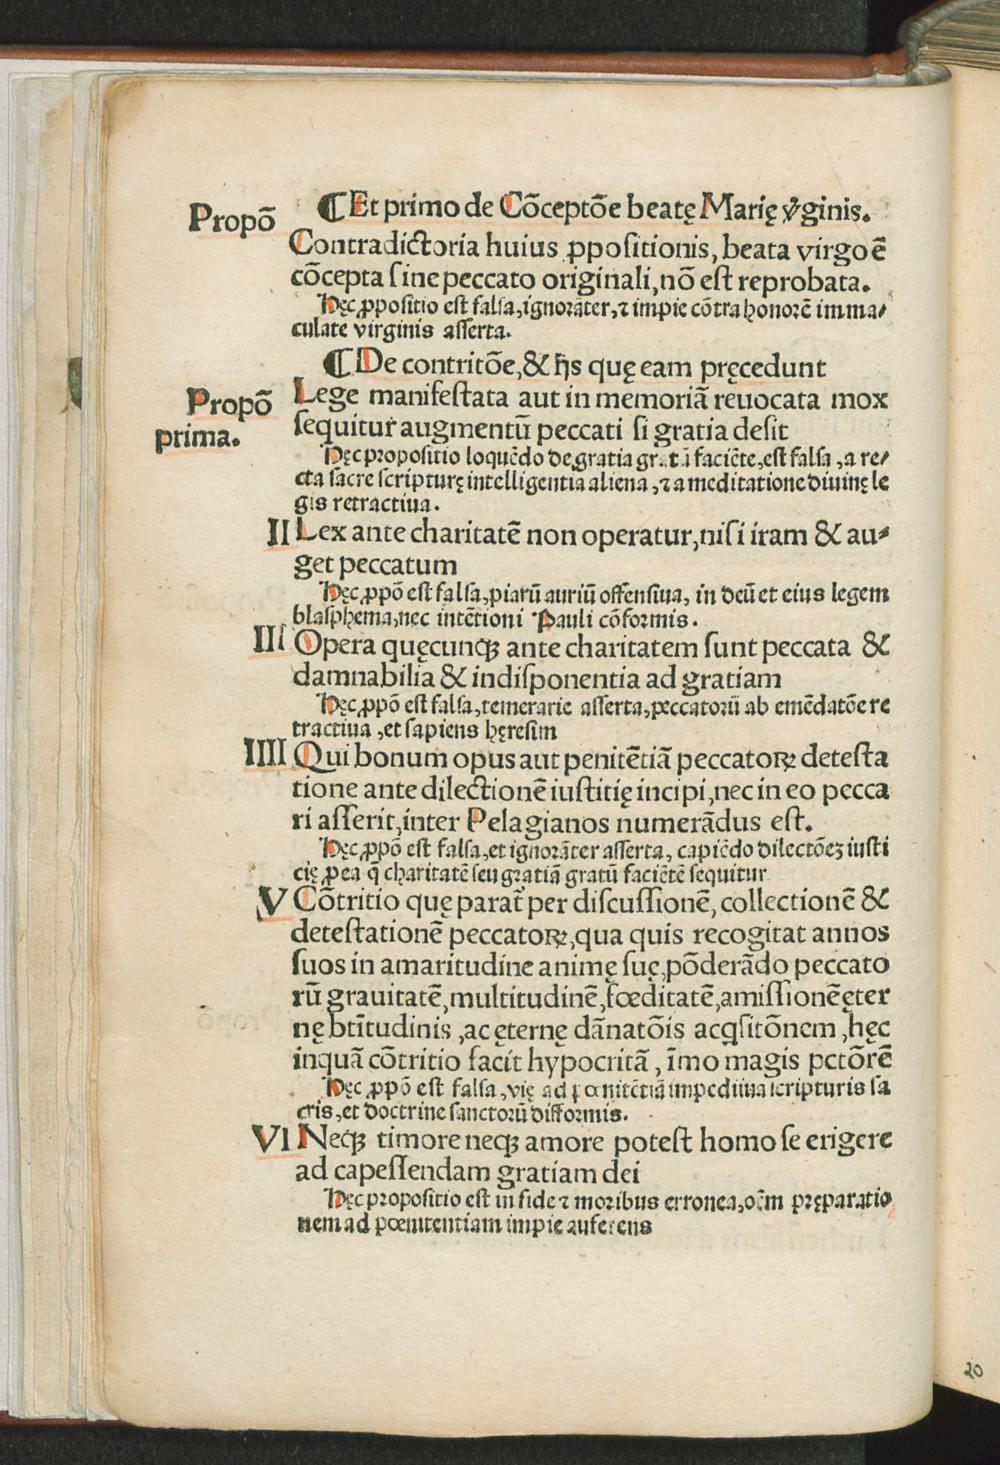 Propō
¶ Et primo de Cōceptōe beatę Marię v̄ginis.
Contradictoria huius ꝓpositionis, beata virgo ē
cōcepta sine peccato originali, nō est reprobata.
Hęc ꝓpositio est falsa, ignorāter, ⁊ impie cōtra honorē imma⸗
culate virginis asserta.
¶ De contritōe, & hijs quę eam pręcedunt
Propō
prima.
Lege manifestata aut in memoriā reuocata mox
sequitur augmentū peccati si gratia desit
Hęc propositio loquēdo de gratia gratā faciēte, est falsa, a re⸗
cta sacre scripturę intelligentia aliena, ⁊ a meditatione diuinę le
gis retractiua.
II Lex ante charitatē non operatur, nisi iram & au⸗
get peccatum
Hęc ꝓpō est falsa, piarū auriū offensiua, in deū et eius legem
blasphema, nec intētioni Pauli cōformis.
III Opera quęcunqꝫ ante charitatem sunt peccata &
damnabilia & indisponentia ad gratiam
Hęc ꝓpō est falsa, temerarie asserta, peccatorū ab emēdatōe re
tractiua, et sapiens hęresim
IIII Qui bonum opus aut penitētiā peccatoꝝ detesta
tione ante dilectionē iustitię incipi, nec in eo pecca
ri asserit, inter Pelagianos numerādus est.
Hęc ꝓpō est falsa, et ignorāter asserta, capiēdo dilectōeꝫ iusti
cię ꝓ ea q̄ charitatē seu gratiā gratū faciētē sequitur
V Cōtritio quę parat̄ per discussionē, collectionē &
detestationē peccatoꝝ, qua quis recogitat annos
suos in amaritudine animę suę, pōderādo peccato
rū grauitatē, multitudinē, fœditatē, amissionē ęter
nę btītudinis, ac ęternę dānatōis acqsitōnem, hęc
inquā cōtritio facit hypocritā, īmo magis pctōrē
Hęc ꝓpō est falsa, vię ad pœnitētiā impeditiua scripturis sa
cris, et doctrine sanctorū difformis.
VI Neqꝫ timore neqꝫ amore potest homo se erigere
ad capessendam gratiam dei
Hęc propositio est in fide ⁊ moribus erronea, oēm pręparatio
nem ad pœnitentiam impie auferens
20